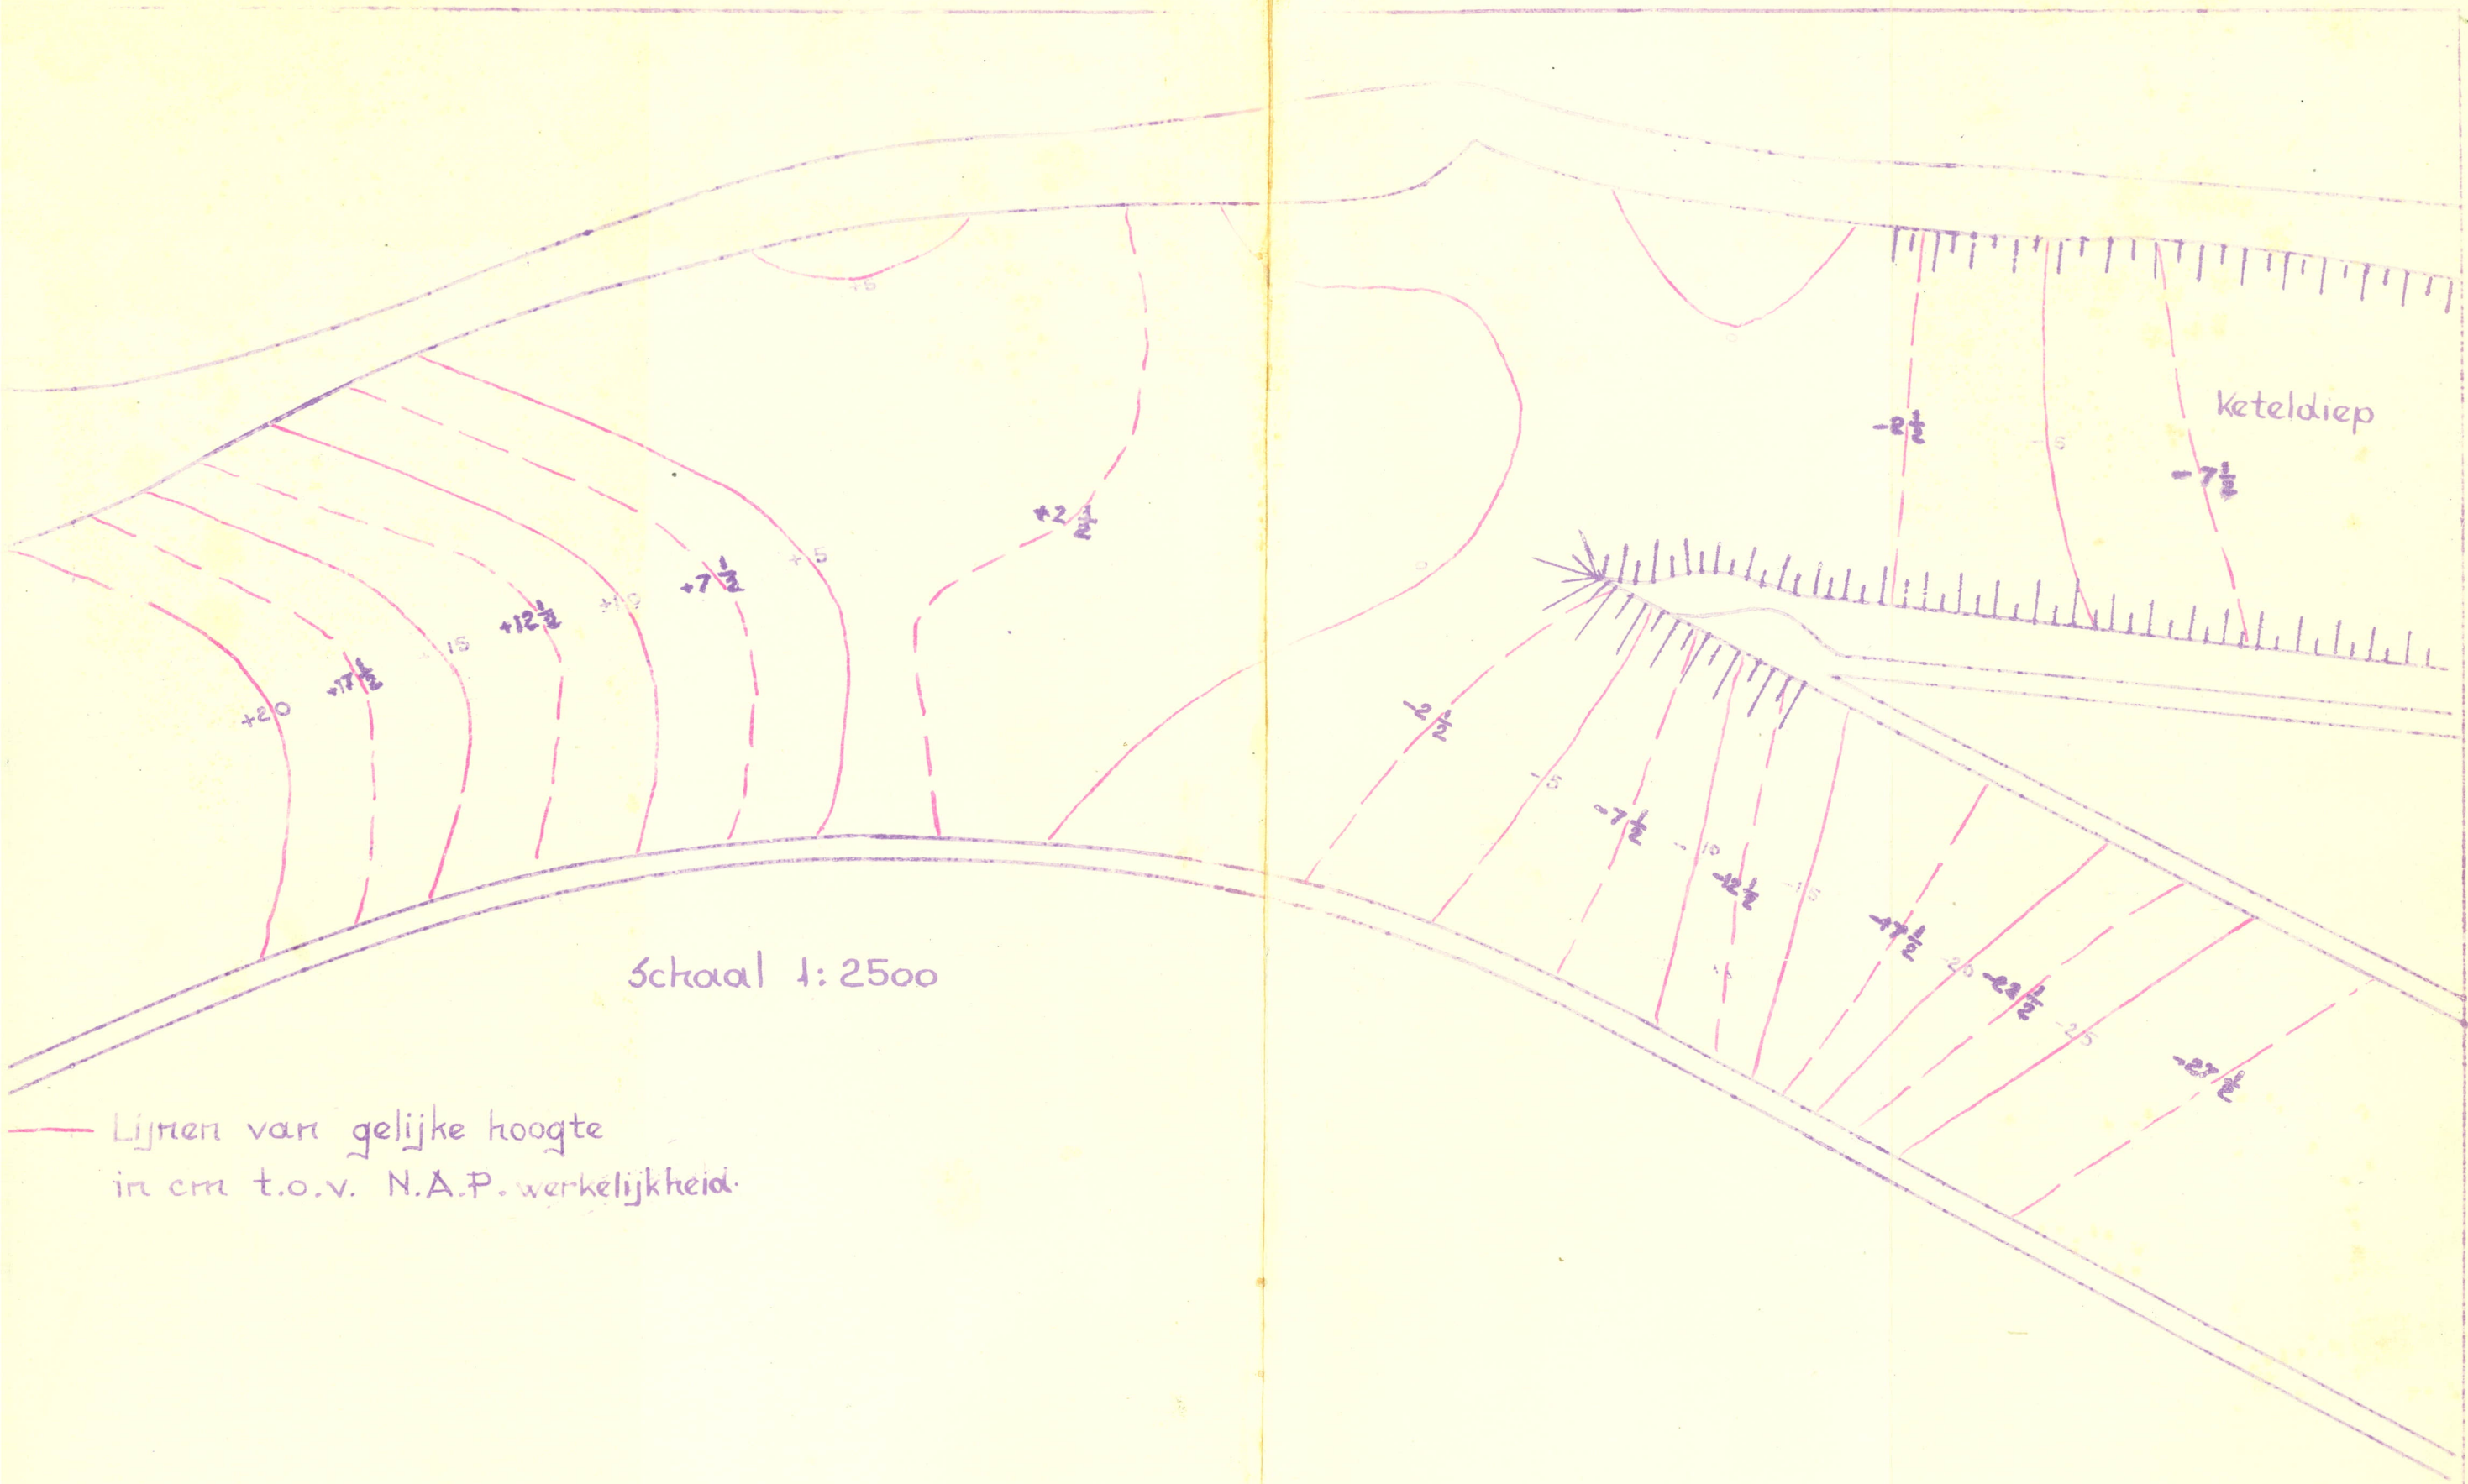 +5
Keteldiep
-2½
-5
-7½
+2½
+5
+7½
+10
+12½
15
+17½
+20
0
0
-2½
-5
-7½
-10
-12½
-15
-17½
-20
-22½
-25
-27½
Schaal 1:2500
Lijnen van gelijke hoogte
in cm t.o.v. N.A.P. werkelijkheid.